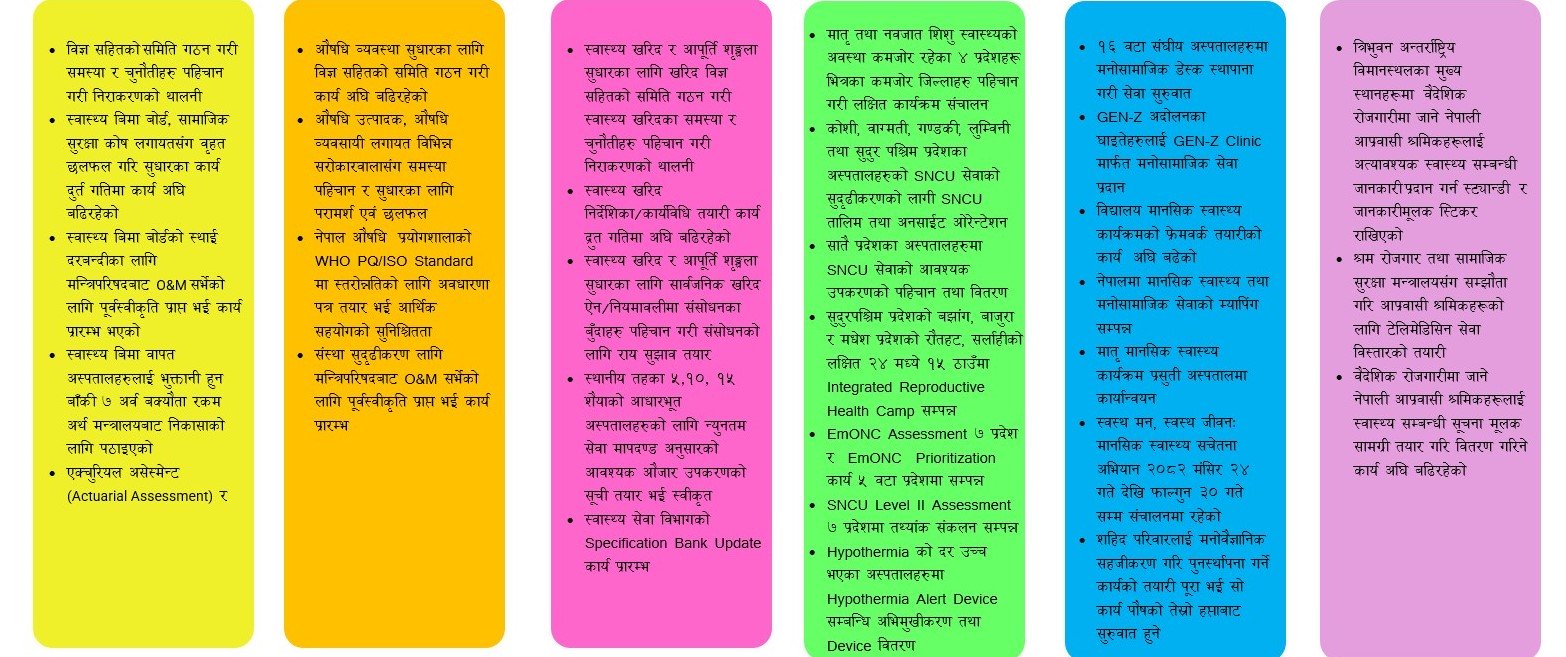 • विज्ञ सहितको समिति गठन गरी
समस्या र चुनौतीहरु पहिचान
गरी निराकरणको थालनी
• स्वास्थ्य बिमा बोर्ड, सामाजिक
सुरक्षा कोष लगायतसंग वृहत
छलफल गरि सुधारका कार्य
दुर्त गतिमा कार्य अघि
बढिरहेको
• स्वास्थ्य बिमा बोर्डको स्थाई
दरबन्दीका लागि
मन्त्रिपरिषदबाट O&M सर्भेको
लागि पूर्वस्वीकृति प्राप्त भई कार्य
प्रारम्भ भएको
• स्वास्थ्य बिमा वापत
अस्पतालहरुलाई भुक्तानी हुन
बाँकी ७ अर्व बक्यौता रकम
अर्थ मन्त्रालयबाट निकासाको
लागि पठाइएको
• एक्चुरियल असेस्मेन्ट
(Actuarial Assessment) र
• औषधि व्यवस्था सुधारका लागि
विज्ञ सहितको समिति गठन गरी
कार्य अघि बढिरहेको
• औषधि उत्पादक, औषधि
व्यवसायी लगायत विभिन्न
सरोकारवालासंग समस्या
पहिचान र सुधारका लागि
परामर्श एवं छलफल
• नेपाल औषधि प्रयोगशालाको
WHO PQ/ISO Standard
मा स्तरोन्नतिको लागि अवधारणा
पत्र तयार भई आर्थिक
सहयोगको सुनिश्चितता
• संस्था सुदृढीकरण लागि
मन्त्रिपरिषदबाट O&M सर्भेको
लागि पूर्वस्वीकृति प्राप्त भई कार्य
प्रारम्भ
• स्वास्थ्य खरिद र आपूर्ति शृङ्खला
सुधारका लागि खरिद विज्ञ
सहितको समिति गठन गरी
स्वास्थ्य खरिदका समस्या र
चुनौतीहरु पहिचान गरी
निराकरणको थालनी
• स्वास्थ्य खरिद
निर्देशिका/कार्यविधि तयारी कार्य
द्रुत गतिमा अघि बढिरहेको
• स्वास्थ्य खरिद र आपूर्ति शृङ्खला
सुधारका लागि सार्वजनिक खरिद
ऐन/नियमावलीमा संसोधनका
बुँदाहरु पहिचान गरी संसोधनको
लागि राय सुझाव तयार
• स्थानीय तहका ५,१०, १५
शैयाको आधारभूत
अस्पतालहरुको लागि न्युनतम
सेवा मापदण्ड अनुसारको
आवश्यक औजार उपकरणको
सूची तयार भई स्वीकृत
• स्वास्थ्य सेवा विभागको
Specification Bank Update
कार्य प्रारम्भ
• मातृ तथा नवजात शिशु स्वास्थ्यको
अवस्था कमजोर रहेका ४ प्रदेशहरू
भित्रका कमजोर जिल्लाहरु पहिचान
गरी लक्षित कार्यक्रम संचालन
• कोशी, वाग्मती, गण्डकी, लुम्विनी
तथा सुदुर पश्चिम प्रदेशका
अस्पतालहरुको SNCU सेवाको
सुदृढीकरणको लागी SNCU
तालिम तथा अनसाईट ओरेन्टेशन
• सातै प्रदेशका अस्पतालहरुमा
SNCU सेवाको आवश्यक
उपकरणको पहिचान तथा वितरण
• सुदुरपश्चिम प्रदेशको बझांग, बाजुरा
र मधेश प्रदेशको रौतहट, सर्लाहीको
लक्षित २४ मध्ये १५ ठाउँमा
Integrated Reproductive
Health Camp सम्पन्न
• EmONC Assessment ७ प्रदेश
र EmONC Prioritization
कार्य ५ वटा प्रदेशमा सम्पन्न
• SNCU Level II Assessment
७ प्रदेशमा तथ्यांक संकलन सम्पन्न
• Hypothermia को दर उच्च
भएका अस्पतालहरुमा
Hypothermia Alert Device
सम्वन्धि अभिमुखीकरण तथा
Device वितरण
• १६ वटा संघीय अस्पतालहरुमा
मनोसामाजिक डेस्क स्थापाना
गरी सेवा सुरुवात
• GEN-Z अदोलनका
घाइतेहरुलाई GEN-Z Clinic
मार्फत मनोसामाजिक सेवा
प्रदान
• विद्यालय मानसिक स्वास्थ्य
कार्यक्रमको फ्रेमवर्क तयारीको
कार्य अघि बढेको
• नेपालमा मानसिक स्वास्थ्य तथा
मनोसामाजिक सेवाको म्यापिंग
सम्पन्न
• मातृ मानसिक स्वास्थ्य
कार्यक्रम प्रसुती अस्पतालमा
कार्यान्वयन
• स्वस्थ मन, स्वस्थ जीवनः
मानसिक स्वास्थ्य सचेतना
अभियान २०८२ मंसिर २४
गते देखि फाल्गुन ३० गते
सम्म संचालनमा रहेको
• शहिद परिवारलाई मनोवैज्ञानिक
सहजीकरण गरि पुनर्स्थापना गर्ने
कार्यको तयारी पूरा भई सो
कार्य पौषको तेस्रो हप्ताबाट
सुरुवात हुने
• त्रिभुवन अन्तर्राष्ट्रिय
विमानस्थलका मुख्य
स्थानहरूमा वैदेशिक
रोजगारीमा जाने नेपाली
आप्रवासी श्रमिकहरूलाई
अत्यावश्यक स्वास्थ्य सम्बन्धी
जानकारी प्रदान गर्न स्ट्यान्डी र
जानकारीमूलक स्टिकर
राखिएको
• श्रम रोजगार तथा सामाजिक
सुरक्षा मन्त्रालयसंग सम्झौता
गरि आप्रवासी श्रमिकहरूको
लागि टेलिमेडिसिन सेवा
विस्तारको तयारी
• वैदेशिक रोजगारीमा जाने
नेपाली आप्रवासी श्रमिकहरूलाई
स्वास्थ्य सम्बन्धी सूचना मूलक
सामग्री तयार गरि वितरण गरिने
कार्य अघि बढिरहेको